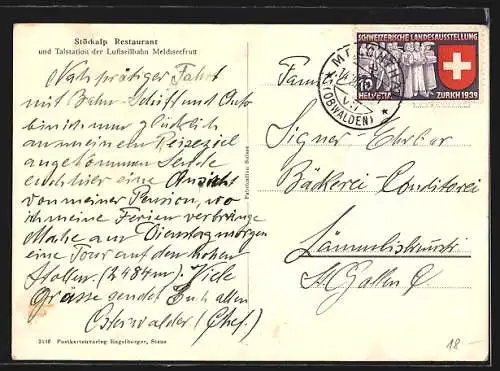 Störkalp Restaurant
und Talstation der Luftseilbahn Meldseefrutt
Nach prächtiger Fahrt
mit Bahn – Schiff und Auto
bin ich nun glücklich
an meinem Reiseziel
angekommen Sende
euch hier eine Ansicht
von meiner Pension, wo
ich meine Ferien verbringe
Mache am Dienstag morgen
eine Tour auf den hohen
(3484 m) Viele
Grüsse sendet Euch allen
Osterwalder (Chef.)
3116 Postkartenverlag Engelberger, Stans
SCHWEIZERISCHE LANDESAUSSTELLUNG
10
HELVETIA ZÜRICH 1939
(OBWALDEN)
Familie
Signer-Ehrbar
Bäckerei-Conditorei
Lämmlisbrunnstr
St. Gallen C.
18.-